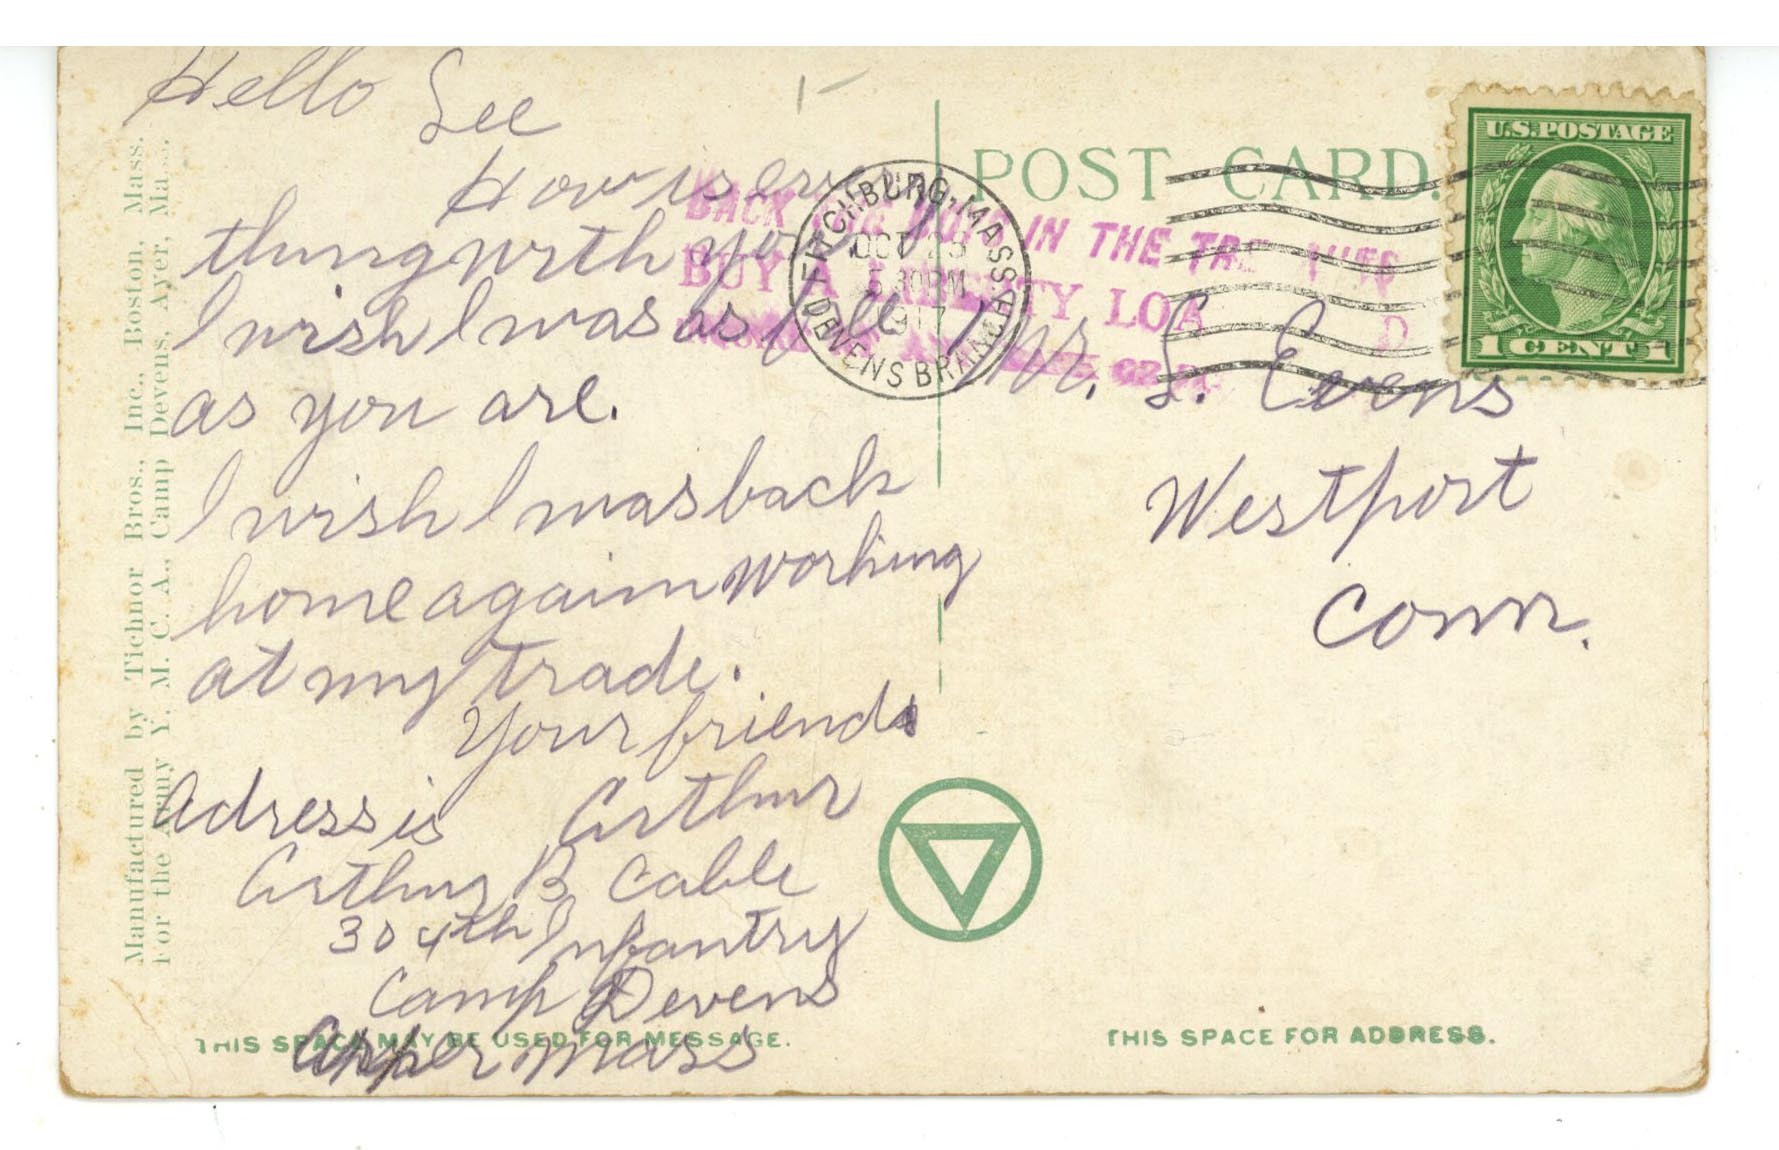 Hello Lee
How is every
thing with you
I wish I was as
as you are.
I wish I was back
home again working
at my trade.
Your friend
Arthur
Adress is
Arthur B Cable
304th Infantry
Camp Devens
Mass
Mr. L. Evens
Westport
Conn.
POST CARD.
U.S. POSTAGE
1 CENT 1
FITCHBURG, MASS.
OCT 29
5 30 PM
1917
DEVENS BRANCH
BACK THE BOYS IN THE TRENCHES
BUY A LIBERTY LOAN
Manufactured by Tichnor Bros., Inc., Boston, Mass.
For the Army Y. M. C. A., Camp Devens, Ayer, Mass.
THIS SPACE MAY BE USED FOR MESSAGE.
THIS SPACE FOR ADDRESS.